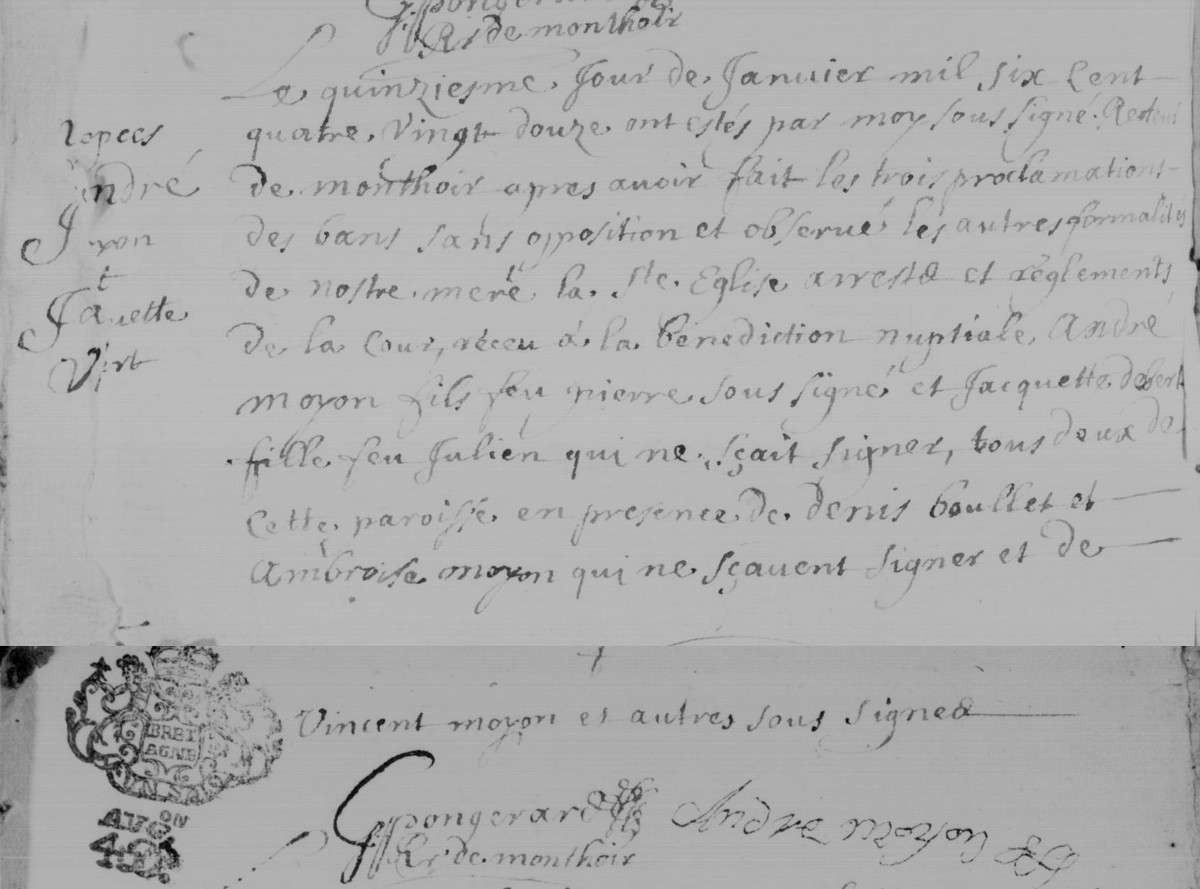 Rr de monthoir
Le quinziesme Jour de Januier mil six Cent
quatre Vingt douze ont estés par moy sous signé Recteur
de monthoir apres auoir fait les trois proclamationt
des bans sans opposition et obserué les autres formalités
de nostre mere la Ste Eglise arresta et reglements
de la Cour, réceu à la bénediction nuptiale André
moyon fils feu pierre sous signé et Jacquette
fille feu Julien qui ne sçait signer, tous deux de
Cette paroisse en presence de denis boullet et
Ambroise moyon qui ne sçauent signer et de
nopces
André
yon
t
Vincent moyon et autres sous signea
BRET
AGNE
pongerard
André moyon
Rr de monthoir